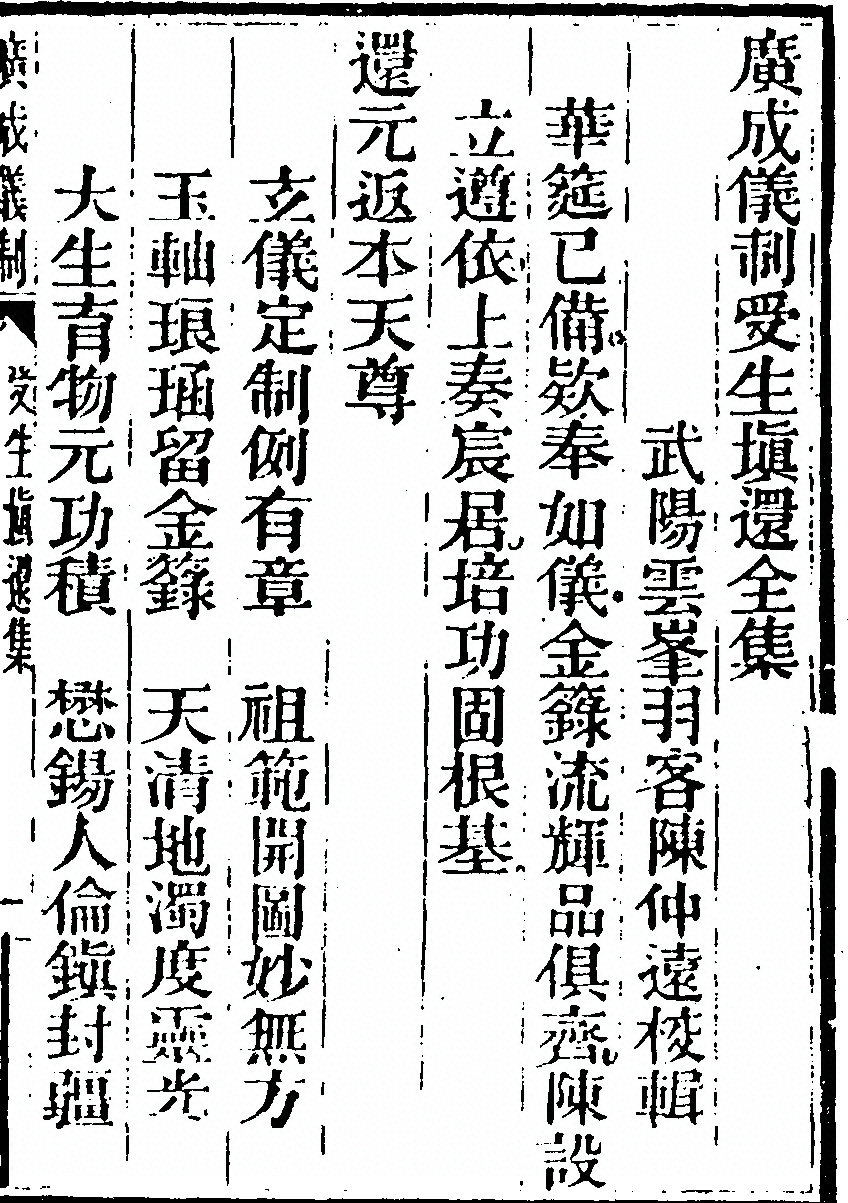 廣成儀制受生塡還全集
武陽雲峯羽客陳仲遠校輯
華筵已備欵奉如儀金籙流輝品俱齊陳設
立遵依上奏宸居培功固根基
還元返本天尊
玄儀定制例有章　祖範開圖妙無方
玉軸琅函留金籙　天清地濁度靈光
大生育物元功積　懋錫人倫鎭封疆
廣成儀制　受生塡還集　一